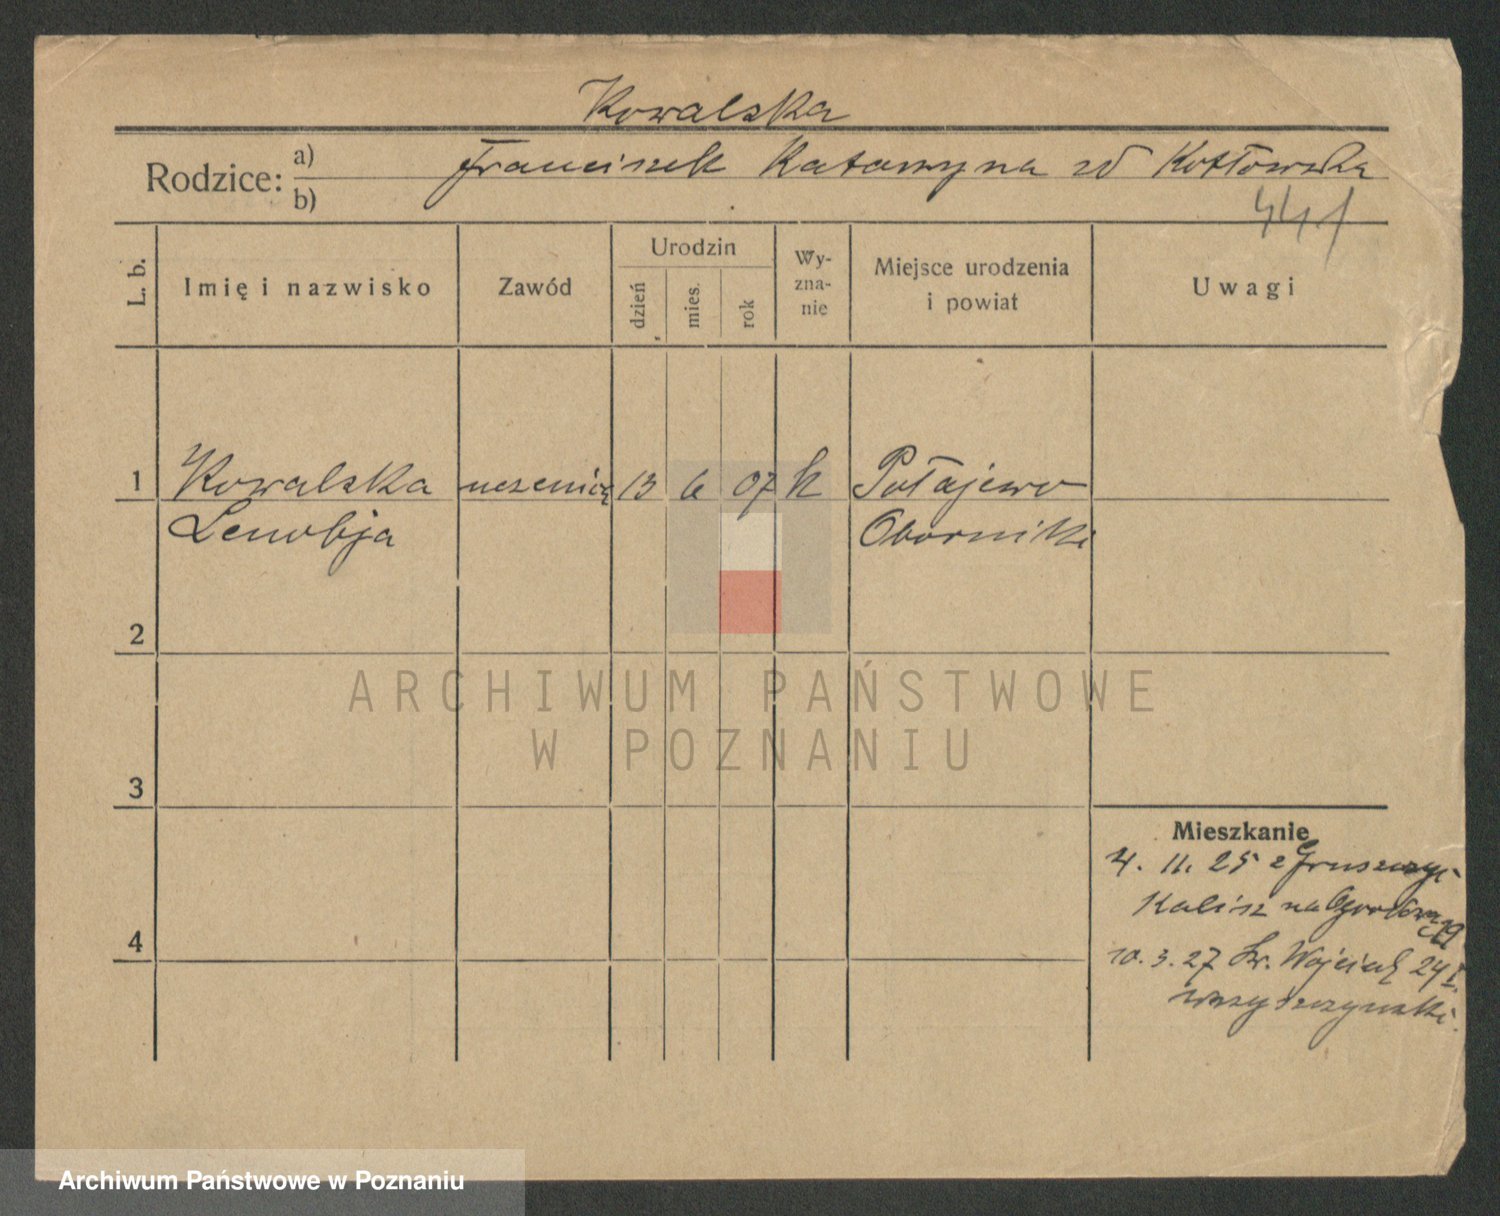 Kowalska
Rodzice: a) Franciszek Katarzyna zd Kotłowska
b)
441
L. b.
Imię i nazwisko
Zawód
Urodzin
dzień
mies.
rok
Wy-
zna-
nie
Miejsce urodzenia
i powiat
Uwagi
1 Kowalska uczenica 13 6 07 k Połajewo
Zenobja Oborniki
2
3
4
Mieszkanie
4. 11. 25 z
Kalisz na
10. 3. 27 Św. Wojciech 24 I.
ARCHIWUM PAŃSTWOWE
W POZNANIU
Archiwum Państwowe w Poznaniu